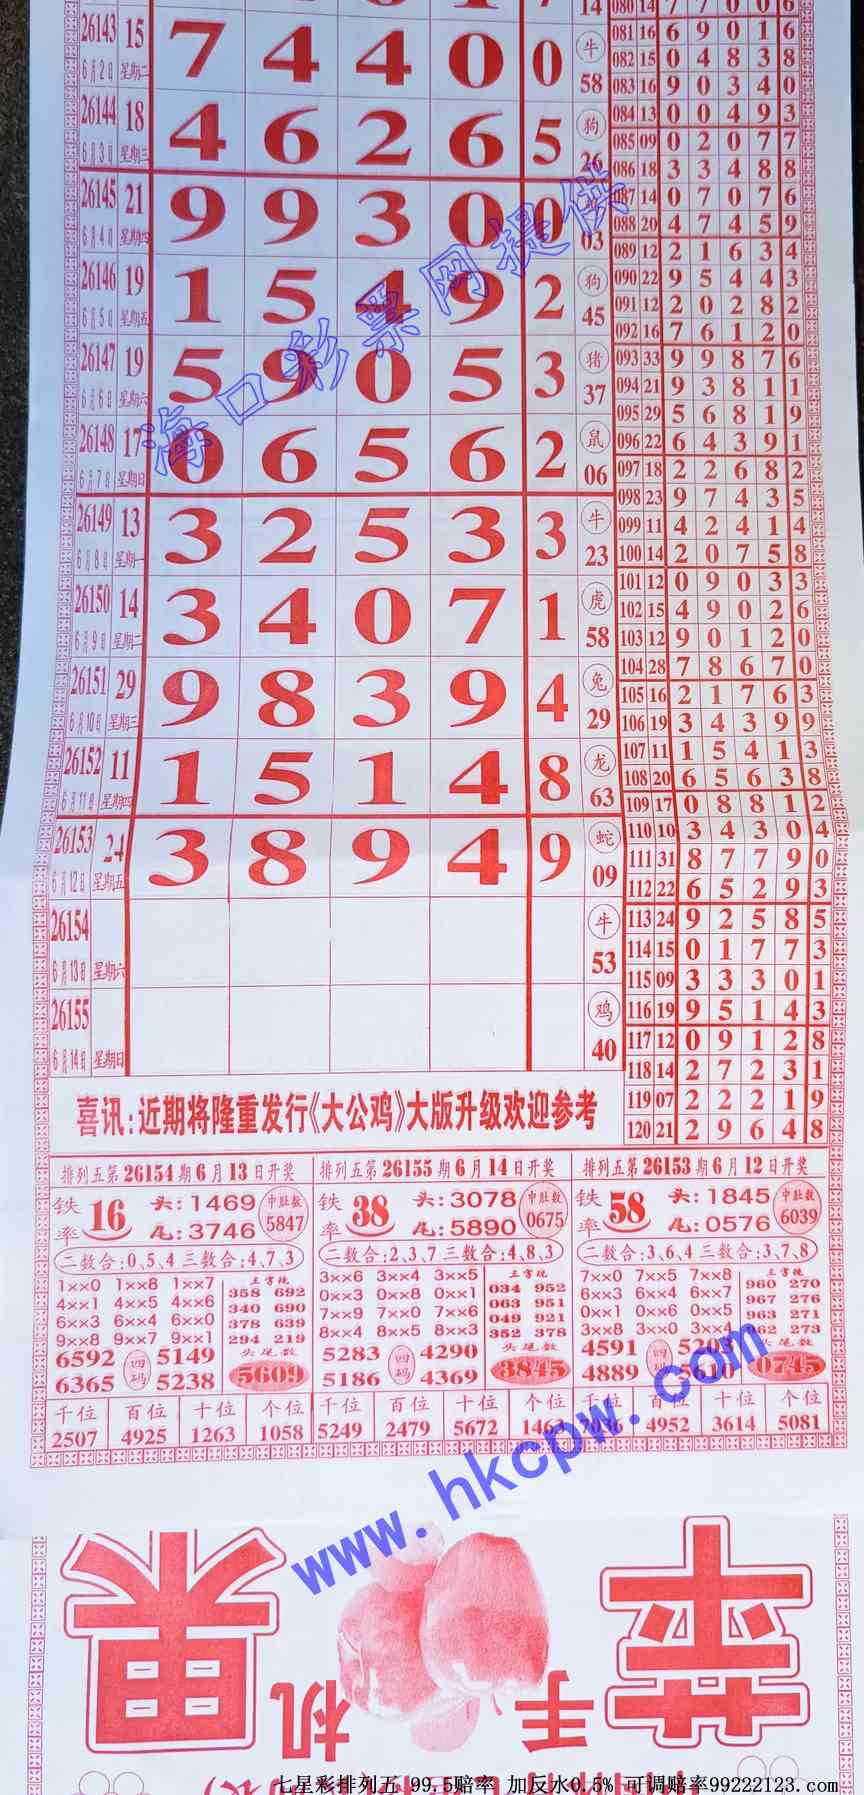 14 080 14 7 7 0 0 6
26143 15 7 4 4 0 0 牛 58
6月2日 星期二
26144 18 4 6 2 6 5 狗 26
6月3日 星期三
26145 21 9 9 3 0 0 03
6月4日 星期四
26146 19 1 5 4 9 2 狗 45
6月5日 星期五
26147 19 5 9 0 5 3 猪 37
6月6日 星期六
26148 17 0 6 5 6 2 鼠 06
6月7日 星期日
26149 13 3 2 5 3 3 牛 23
6月8日 星期一
26150 14 3 4 0 7 1 虎 58
6月9日 星期二
26151 29 9 8 3 9 4 兔 29
6月10日 星期三
26152 11 1 5 1 4 8 龙 63
6月11日 星期四
26153 24 3 8 9 4 9 蛇 09
6月12日 星期五
26154 牛 53
6月13日 星期六
26155 鸡 40
6月14日 星期日
081 16 6 9 0 1 6
082 15 0 4 8 3 8
083 16 9 0 3 4 0
084 13 0 0 4 9 3
085 09 0 2 0 7 7
086 18 3 3 4 8 8
087 14 0 7 0 7 6
088 20 4 7 4 5 9
089 12 2 1 6 3 4
090 22 9 5 4 4 3
091 12 2 0 2 8 2
092 16 7 6 1 2 0
093 33 9 9 8 7 6
094 21 9 3 8 1 1
095 29 5 6 8 1 9
096 22 6 4 3 9 1
097 18 2 2 6 8 2
098 23 9 7 4 3 5
099 11 4 2 4 1 4
100 14 2 0 7 5 8
101 12 0 9 0 3 3
102 15 4 9 0 2 6
103 12 9 0 1 2 0
104 28 7 8 6 7 0
105 16 2 1 7 6 3
106 19 3 4 3 9 9
107 11 1 5 4 1 3
108 20 6 5 6 3 8
109 17 0 8 8 1 2
110 10 3 4 3 0 4
111 31 8 7 7 9 0
112 22 6 5 2 9 3
113 24 9 2 5 8 5
114 15 0 1 7 7 3
115 09 3 3 3 0 1
116 19 9 5 1 4 3
117 12 0 9 1 2 8
118 14 2 7 2 3 1
119 07 2 2 2 1 9
120 21 2 9 6 4 8
海口彩票网提供
喜讯:近期将隆重发行《大公鸡》大版升级欢迎参考
排列五第26154期6月13日开奖
铁率 16 头:1469 尾:3746 中肚数 5847
二数合:0,5,4 三数合:4,7,3
1××0 1××8 1××7
4××1 4××5 4××6
6××3 6××4 6××0
9××8 9××7 9××1
358 692
340 690
378 639
294 219
6592 四码 5149 头尾数
6365 5238 5609
千位 百位 十位 个位
2507 4925 1263 1058
排列五第26155期6月14日开奖
铁率 38 头:3078 尾:5890 中肚数 0675
二数合:2,3,7 三数合:4,8,3
3××6 3××4 3××5
0××3 0××8 0××1
7××9 7××0 7××6
8××4 8××5 8××3
034 952
063 951
049 921
352 378
5283 四码 4290 头尾数
5186 4369 3845
千位 百位 十位 个位
5249 2479 5672 1463
排列五第26153期6月12日开奖
铁率 58 头:1845 尾:0576 中肚数 6039
二数合:3,6,4 三数合:3,7,8
7××0 7××5 7××8
6××3 6××4 6××7
0××1 0××6 0××5
3××8 3××0 3××4
960 270
967 276
963 271
962 273
4591 四码 5203 头尾数
4889 5610 0745
千位 百位 十位 个位
7036 4952 3614 5081
www.hkcpw.com
苹果
手机
七星彩排列五 99.5赔率 加反水0.5% 可调赔率99222123.com